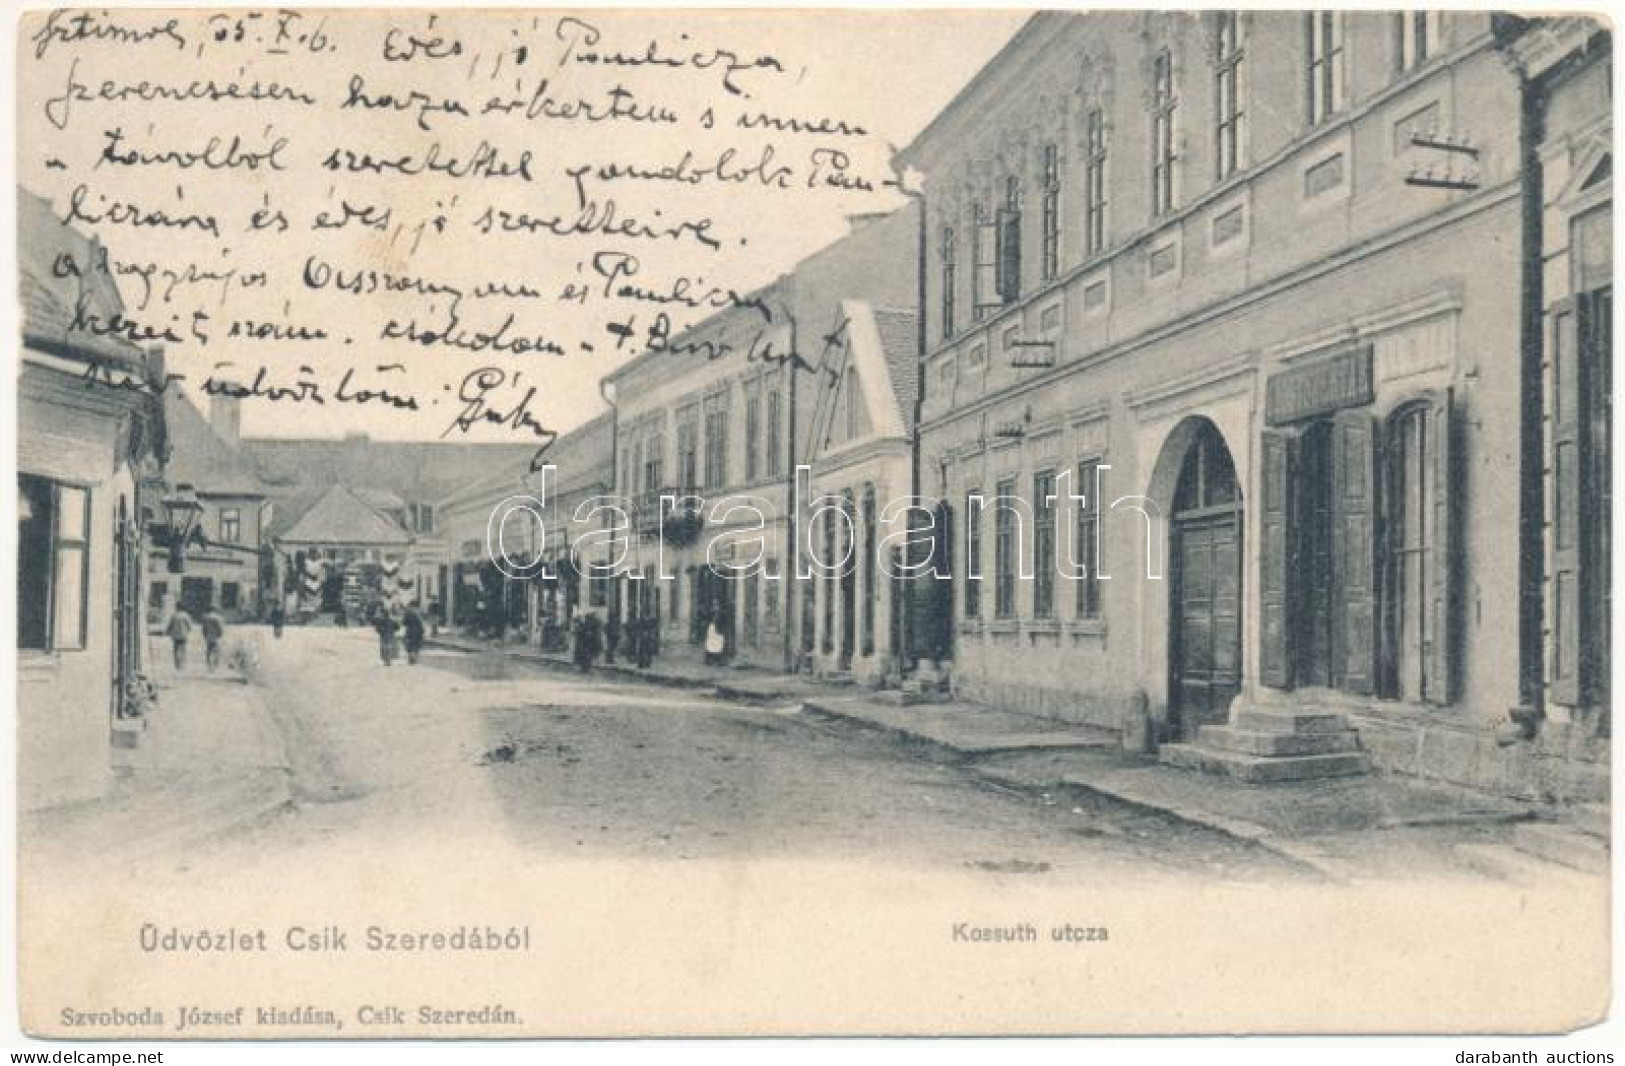 05. X. 6. Édes, jó Paulicza,
szerencsésen haza érkeztem s innen
a távolból szeretettel gondolok Pau-
liczára és édes, jó szeretteire.
a nagyságos Asszonyom és Paulicza
kezeit szám. csókolom
üdvözlöm:
darabanth
Üdvözlet Csik Szeredából
Kossuth utcza
Szvoboda József kiadása, Csik Szeredán.
darabanth auctions
www.darabanth.com